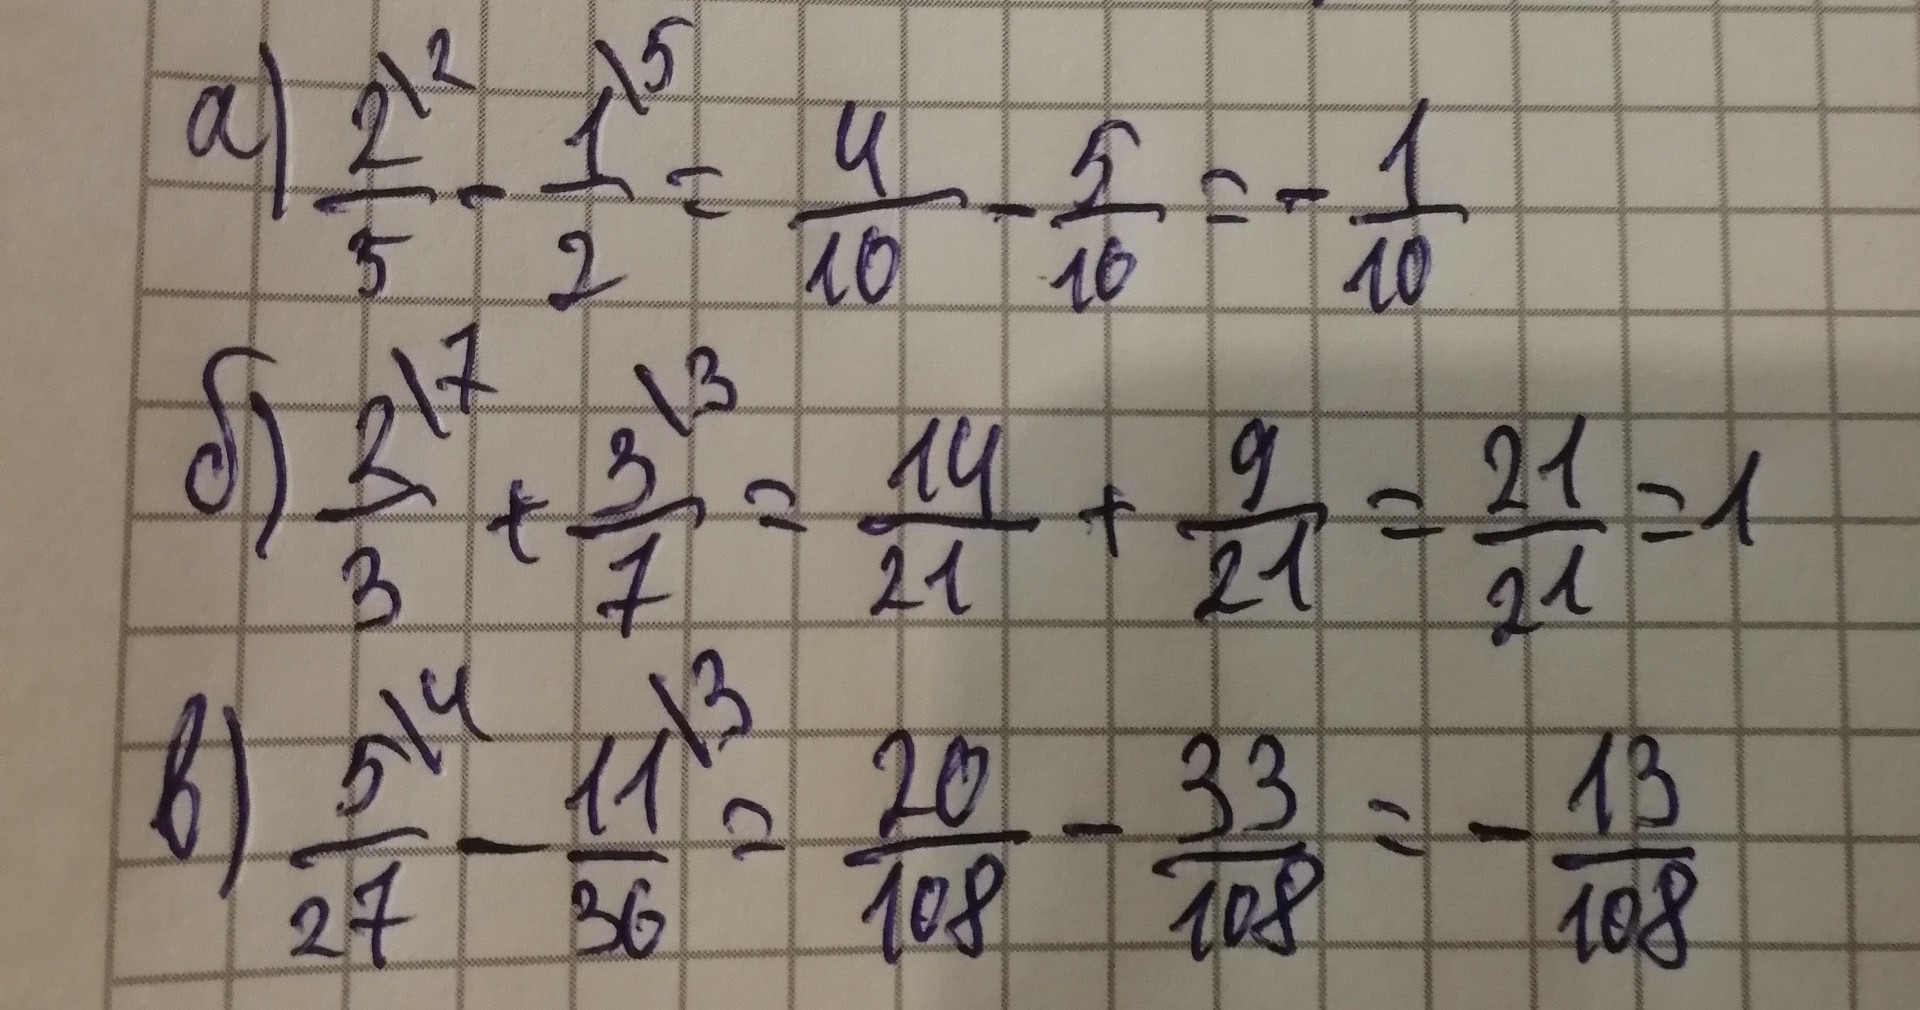 а) 2\2/5 - 1\5/2 = 4/10 - 5/10 = - 1/10
б) 2\7/3 + 3\3/7 = 14/21 + 9/21 = 21/21 = 1
в) 5\4/27 - 11\3/36 = 20/108 - 33/108 = - 13/108